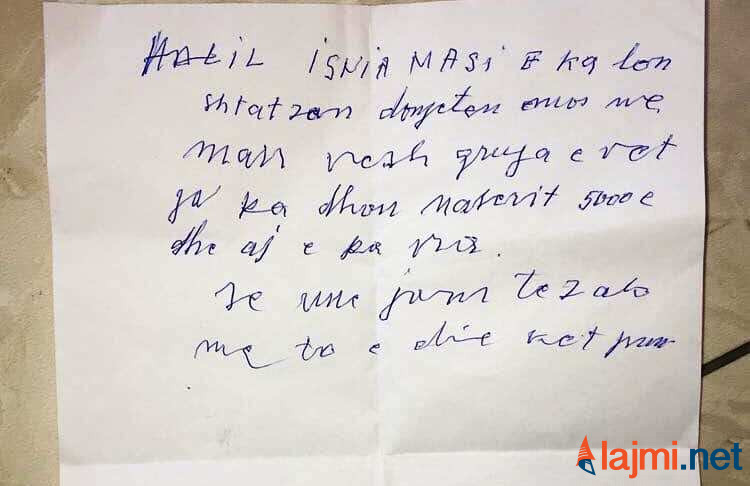 HALIL ISNIA MASI E ka lon
shtatzan donjeten mos me
marr vesh gruja e vet
ja ka dhon Naserit 5000 e
dhe aj e ka vra.
se une jam tezak
me to e die vet
lajmi.net